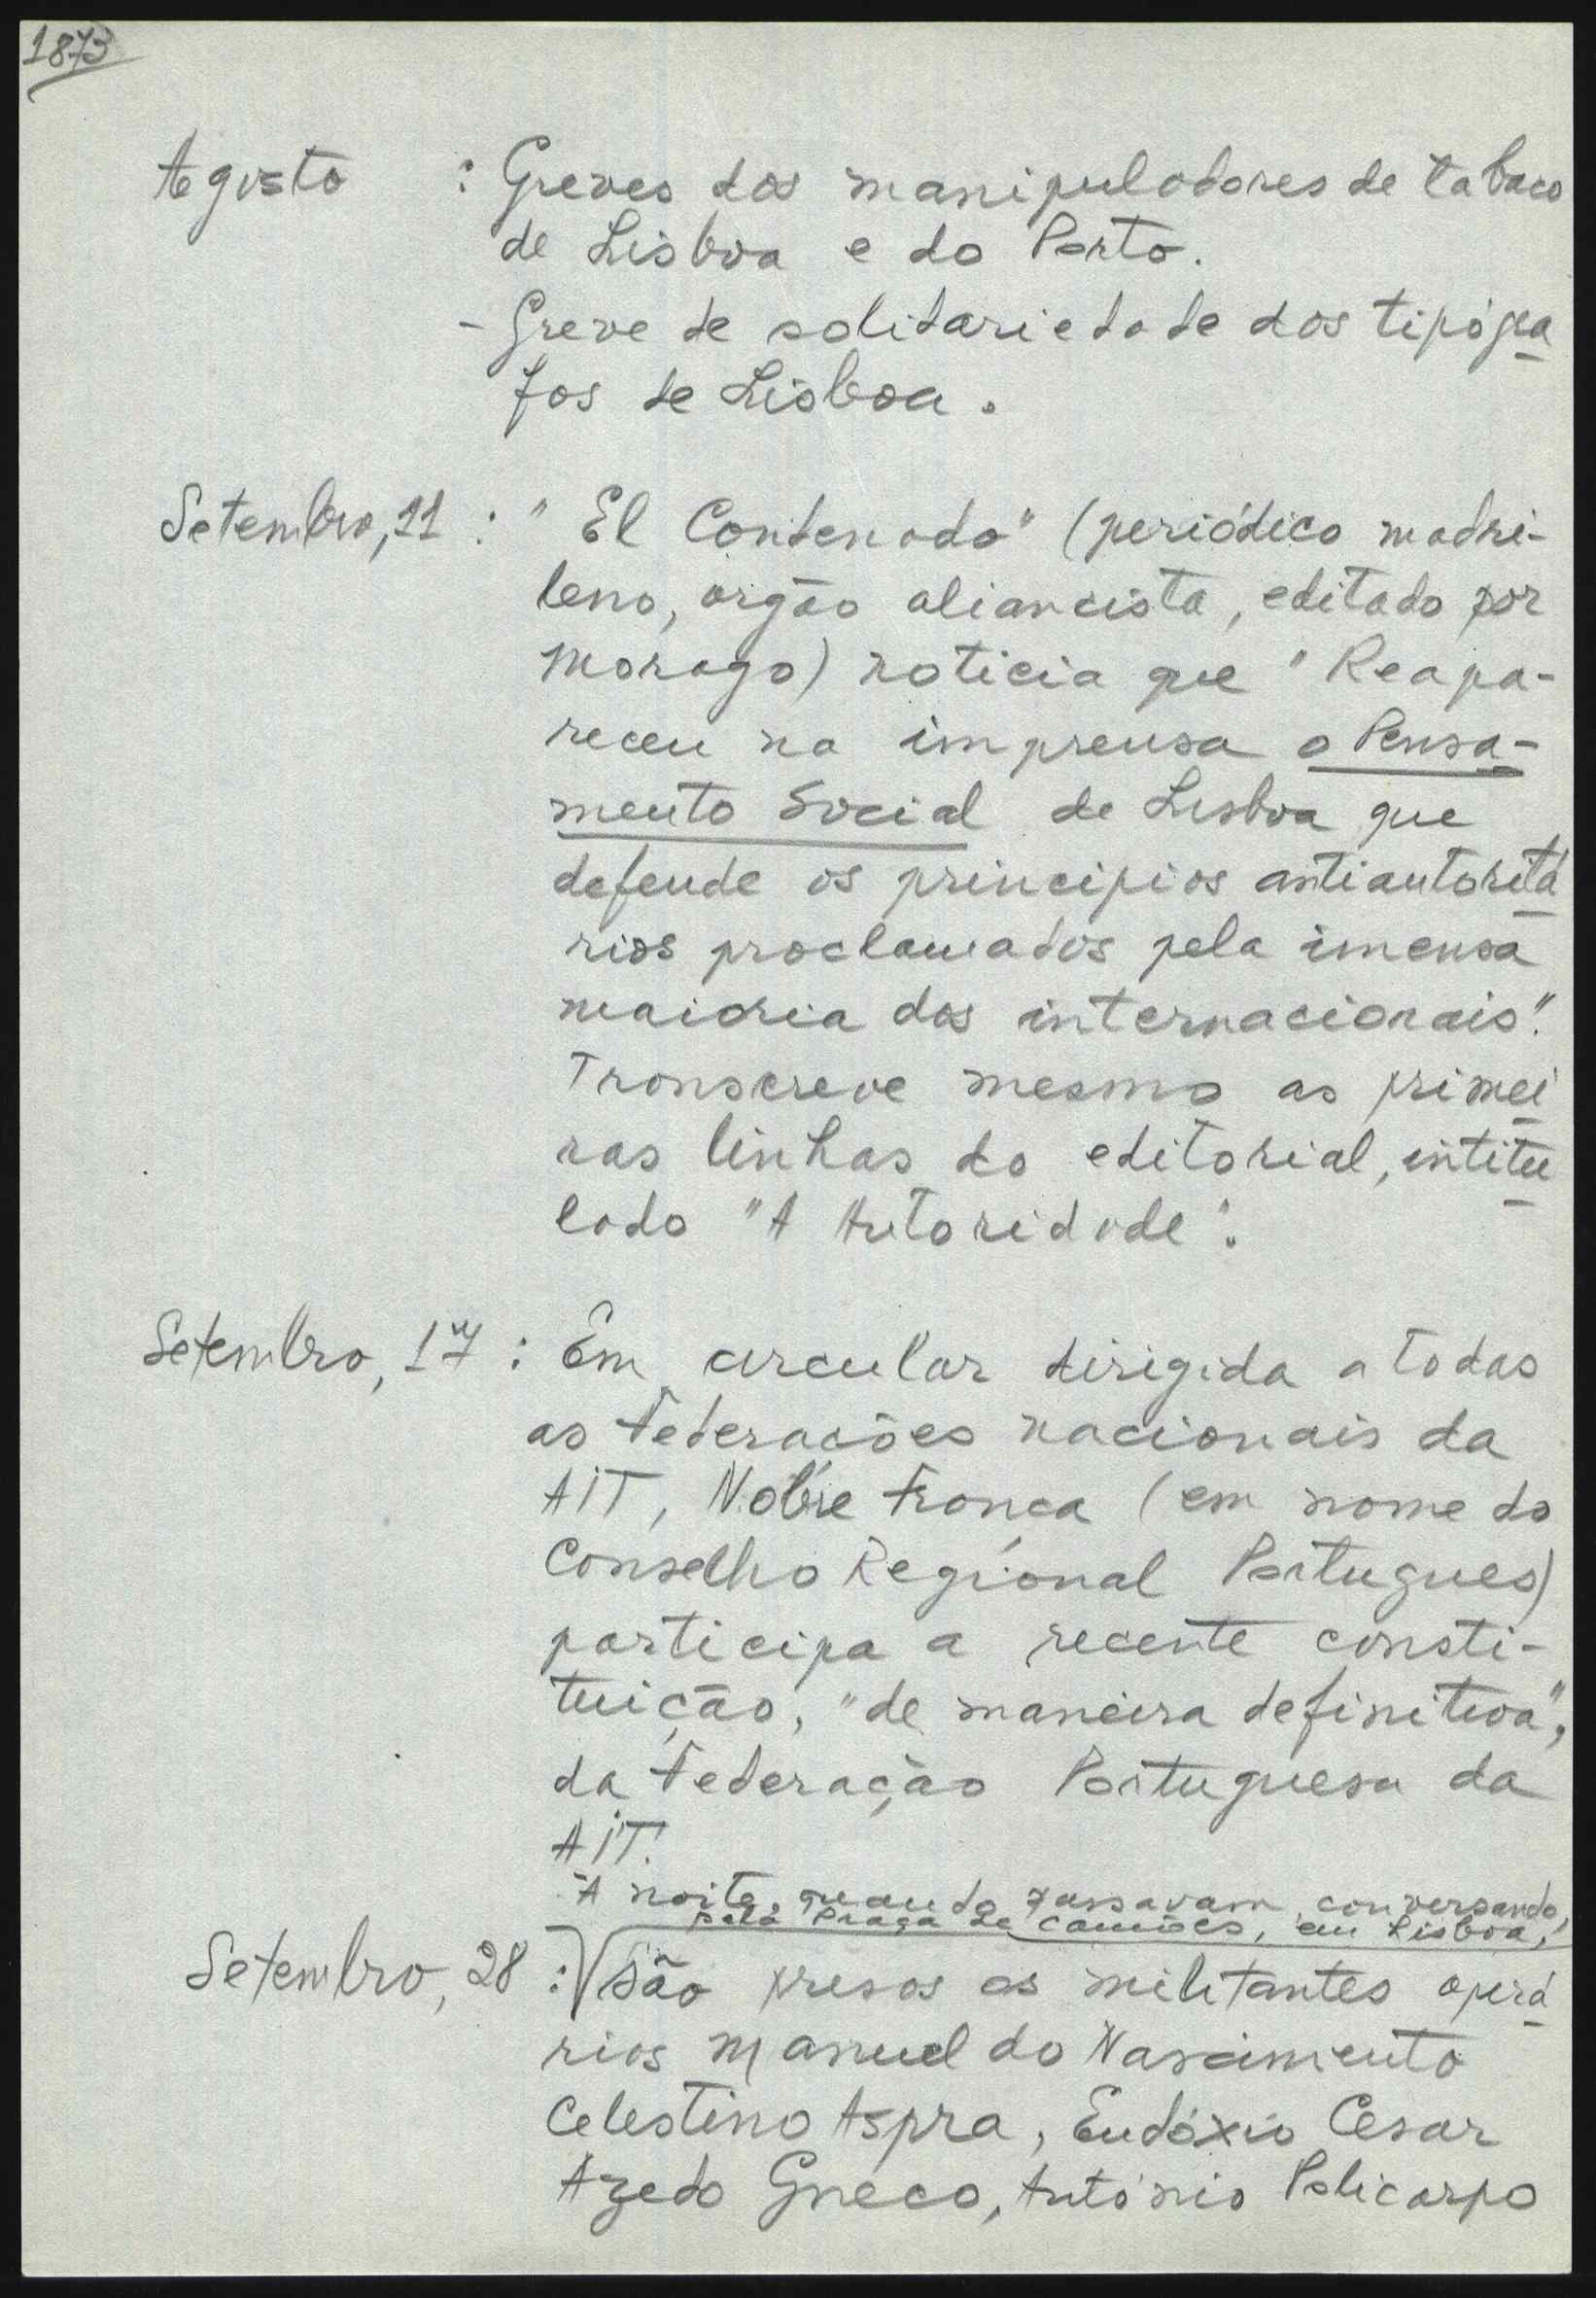 1873
Agosto : Greves dos manipuladores de tabaco
de Lisboa e do Porto.
- Greve de solidariedade dos tipógra
fos de Lisboa.
Setembro, 11 : "El Condenado" (periódico madri-
leno, orgão aliancista, editado por
Morago) noticia que "Reapa-
receu na imprensa o Pensa-
mento Social de Lisboa que
defende os principios antiautoritá
rios proclamados pela imensa
maioria dos internacionais".
Transcreve mesmo as primei
ras linhas do editorial, intitu
lado "A Autoridade".
Setembro, 17 : Em circular dirigida a todas
as Federações nacionais da
AIT, Nobre França (em nome do
Conselho Regional Portugues)
participa a recente consti-
tuição, "de maneira definitiva",
da Federação Portuguesa da
AIT.
À noite, quando passavam, conversando,
pela Praça de Camões, em Lisboa,
Setembro, 28 : São presos os militantes operá
rios Manuel do Nascimento
Celestino Aspra, Eudóxio Cesar
Azedo Gneco, António Policarpo